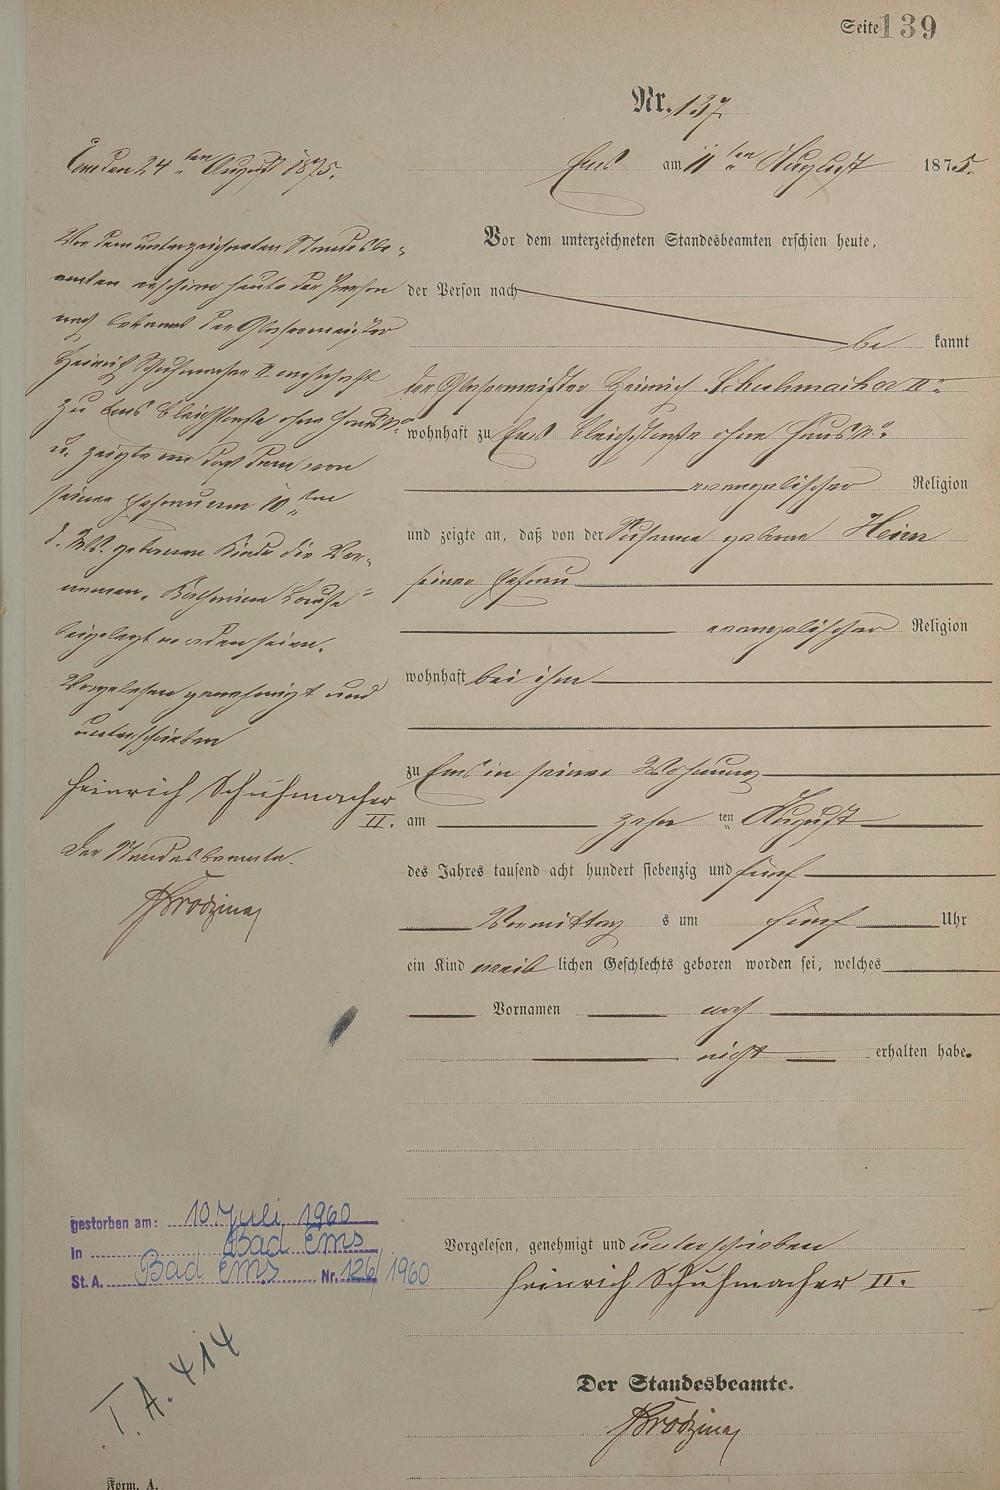 Seite 139
Nr. 137.
Ems am 11ten August 1875.
Vor dem unterzeichneten Standesbeamten erschien heute,
der Person nach
be kannt
der Glasermeister Heinrich Schuhmacher II.
wohnhaft zu Ems Bleichstraße ohne Haus No.
evangelischer Religion
und zeigte an, daß von der Susanna geborne Heinr
seiner Ehefrau
evangelischer Religion
wohnhaft bei ihm
zu Ems in seiner Wohnung
am zehn ten August
des Jahres tausend acht hundert siebenzig und fünf
Vormittag s um fünf Uhr
ein Kind weib lichen Geschlechts geboren worden sei, welches
Vornamen noch
nicht erhalten habe.
Vorgelesen, genehmigt und unterschrieben
Heinrich Schuhmacher II.
Der Standesbeamte.
Ems den 24ten August 1875.
Vor dem unterzeichneten Standesbe-
amten erschien heute der Person
nach bekannt der Glasermeister
Heinrich Schuhmacher II wohnhaft
zu Ems Bleichstraße ohne Haus No.
u. zeigte an daß dem von
seiner Ehefrau am 10ten
d. Mts. geborenen Kinde die Vor-
namen "Katharina Louise"
beigelegt worden seien.
Vorgelesen genehmigt und
unterschrieben
Heinrich Schuhmacher
II.
Der Standesbeamte.
gestorben am: 10. Juli 1960
in Bad Ems
St. A. Bad Ems Nr. 126/1960
T. A. 414
Form. A.